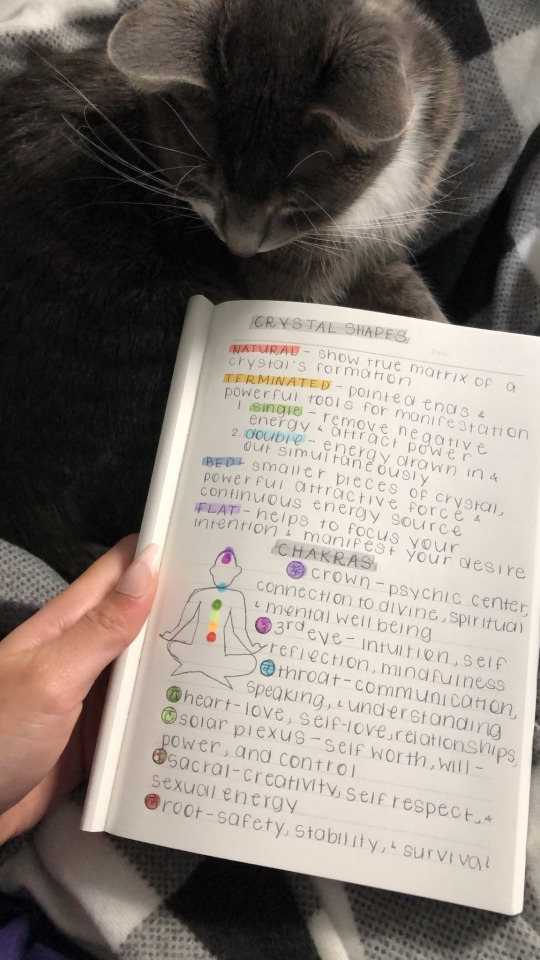 CRYSTAL SHAPES
NATURAL - show true matrix of a
crystal's formation
TERMINATED - pointed ends &
powerful tools for manifestation
1. single - remove negative
energy & attract power
2. double - energy drawn in &
out simultaneously
BED - smaller pieces of crystal,
powerful attractive force &
continuous energy source
FLAT - helps to focus your
intention & manifest your desire
CHAKRAS
crown - psychic center,
connection to divine, spiritual
& mental well being
3rd eye - intuition, self
reflection, mindfulness
throat - communication,
speaking, & understanding
heart - love, self-love, relationships,
solar plexus - self worth, will-
power, and control
sacral - creativity, self respect, &
sexual energy
root - safety, stability, & survival